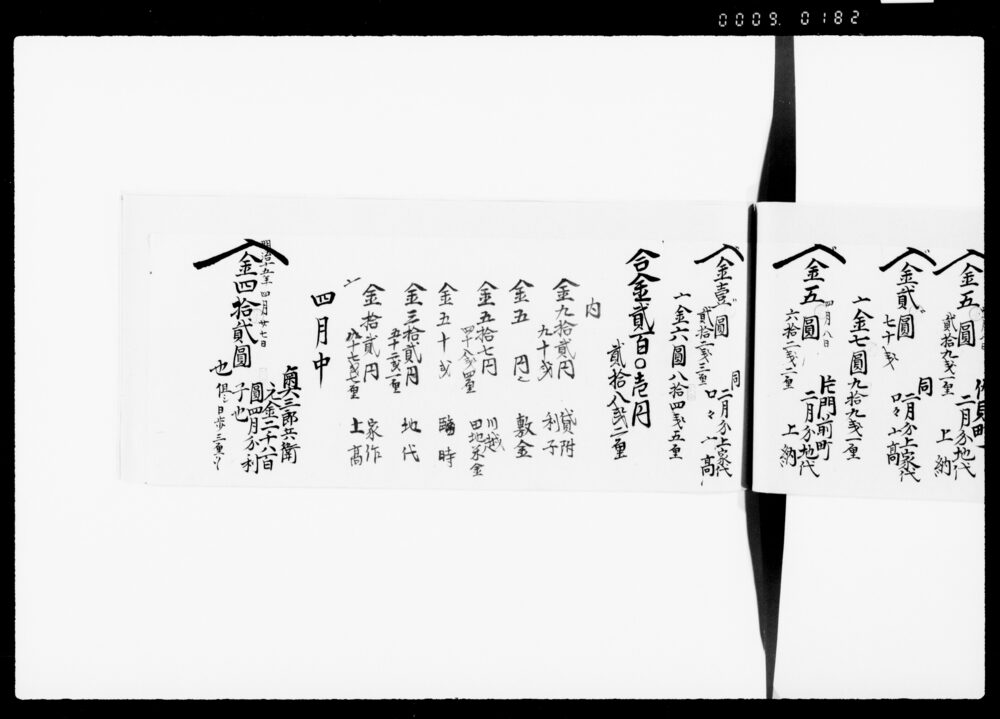 0009. 0182
金五圓
貳拾九戋一重
二月分地代
上納
金貳圓
七十戋
同
二月分上家代
口々〆高
一金七圓九拾九戋一重
金五圓
四月八日
六拾二戋一重
片門前町
二月分地代
上納
金壹圓
貳拾二戋三重
同
二月分上家代
口々〆高
一金六圓八拾四戋五重
合金貳百〇壱円
貳拾八戋二重
内
金九拾貳円
九十戋
貸附
利子
金五円
敷金
金五拾七円
四十八戋四重
川越
田地米金
金五十戋
臨時
金三拾貳円
五十二戋一重
地代
金拾貳円
九十七戋七重
家作
上高
四月中
明治十五年四月廿七日
金四拾貳圓
奥三郎兵衛
元金二千八百
圓四月分利
子也
但日歩三重ツ
也